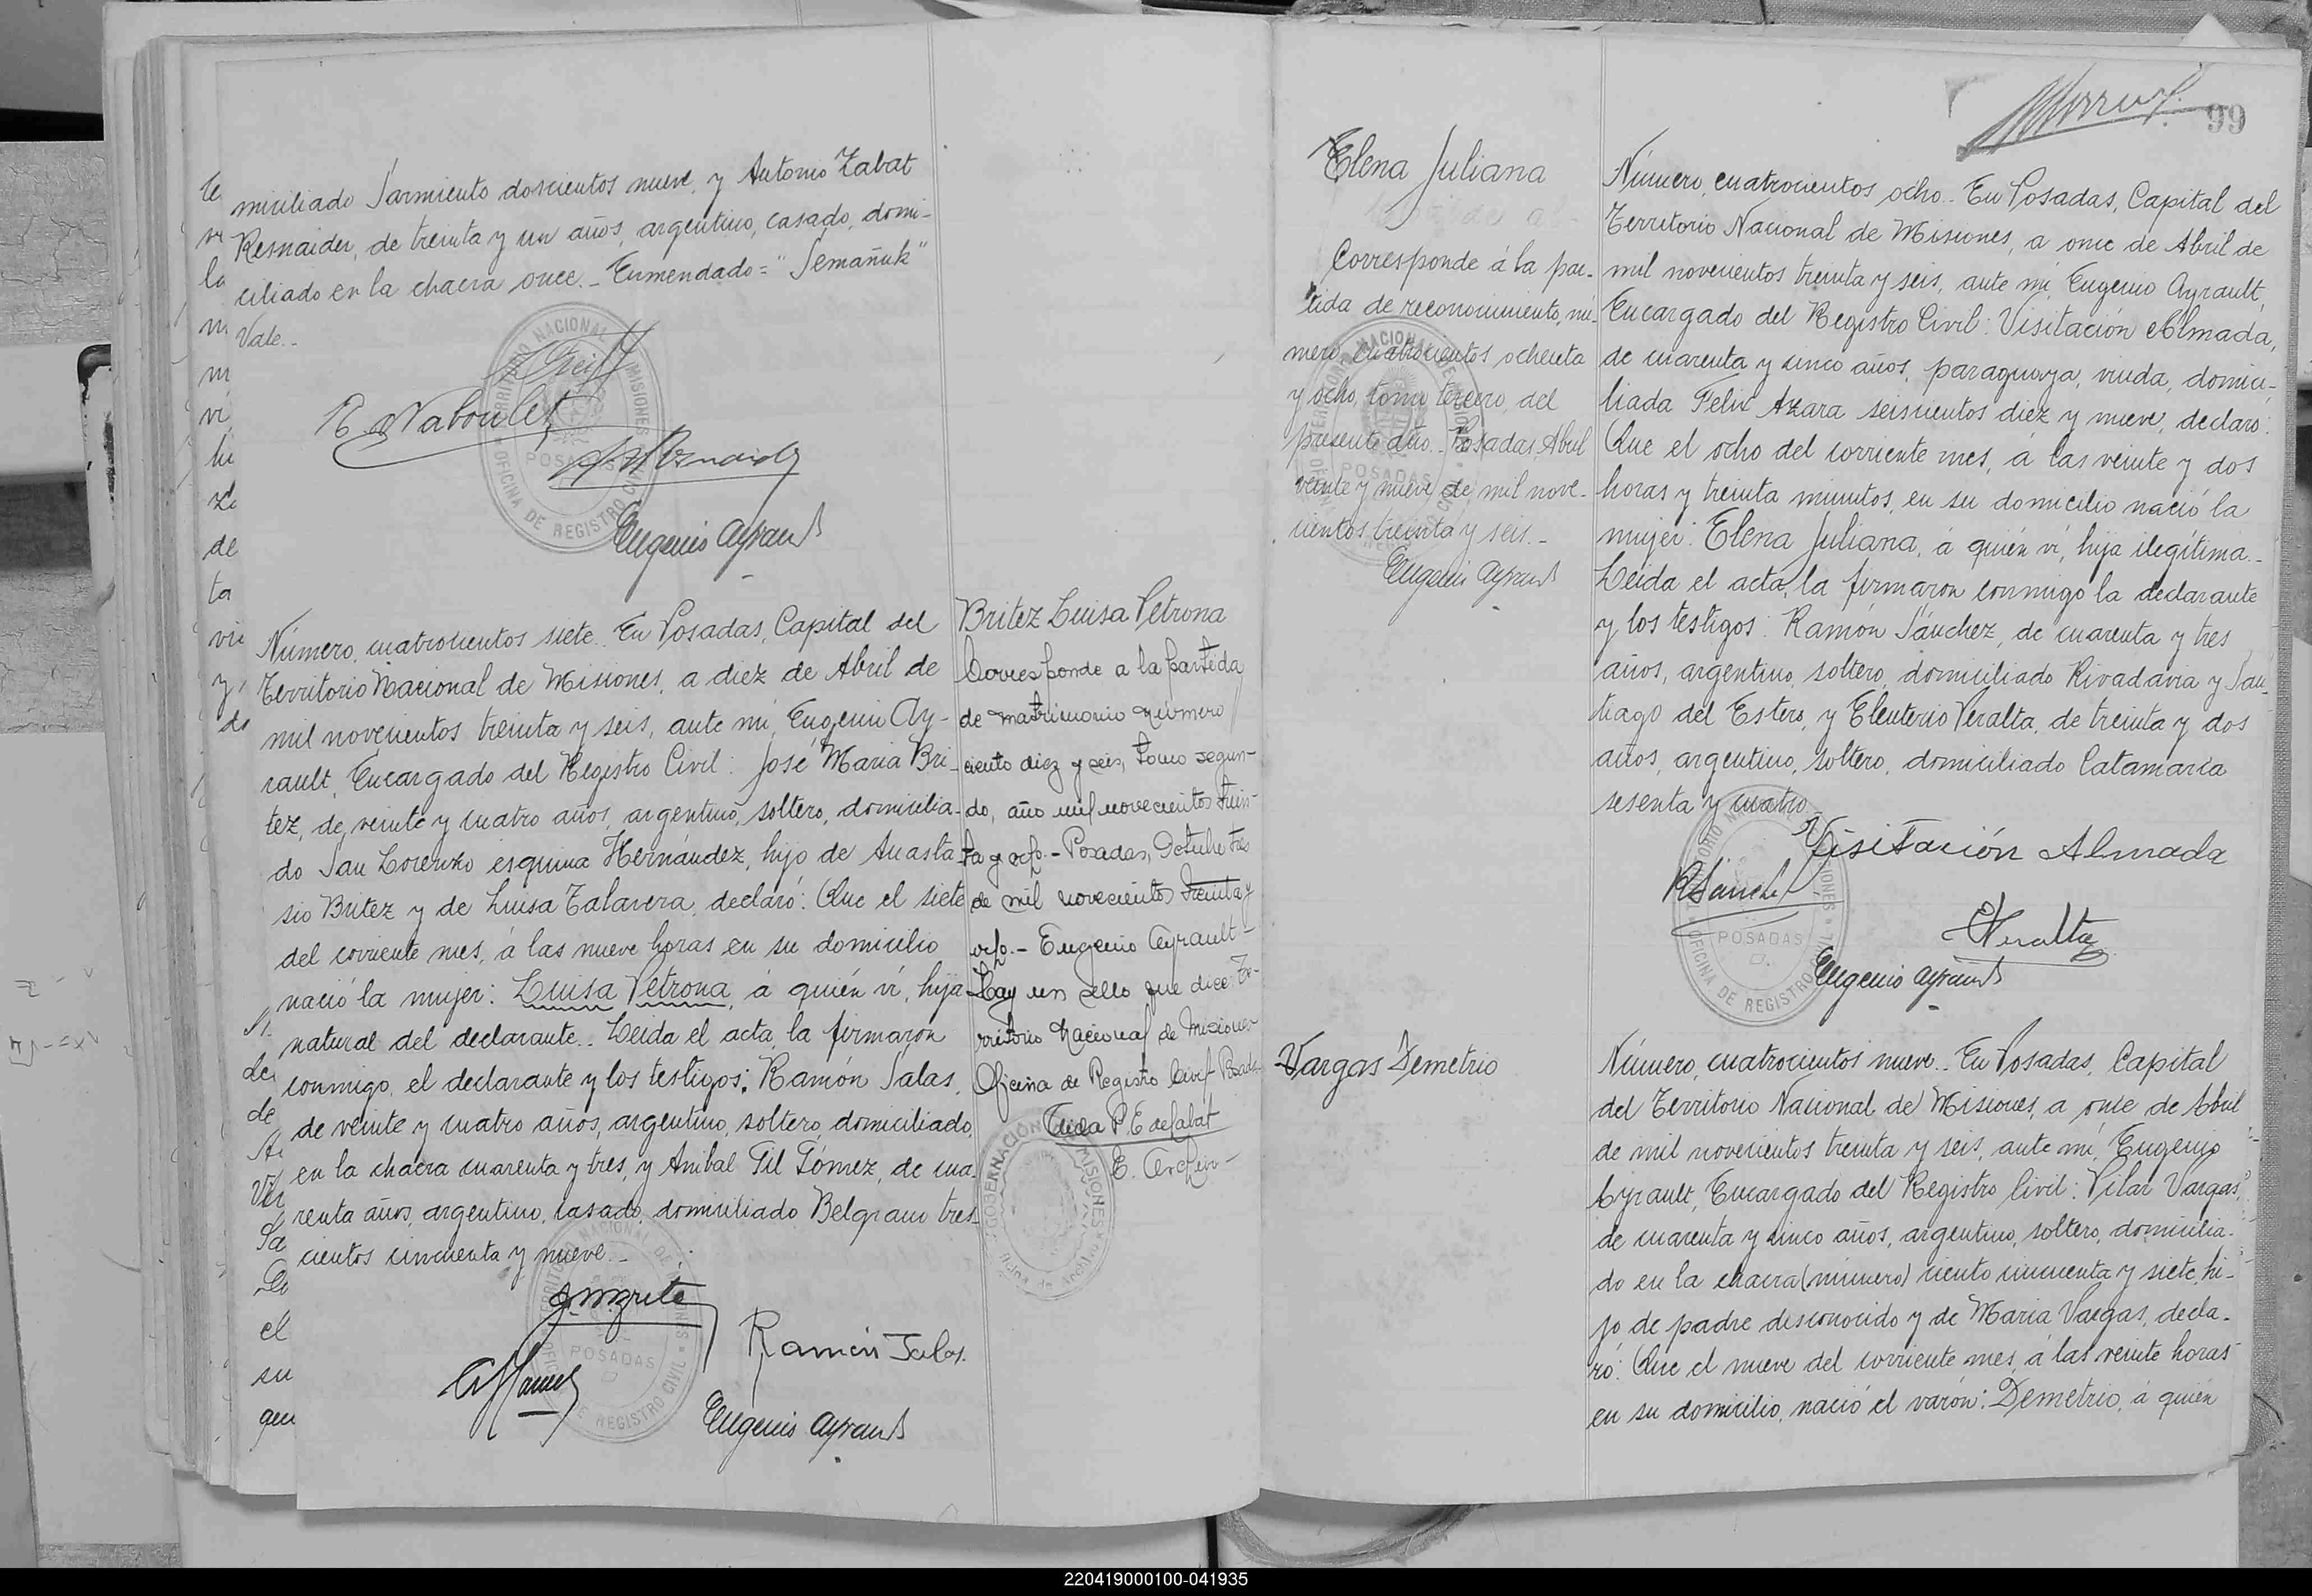 miciliado Sarmiento doscientos nueve, y Antonio Zabat
Resnaider, de treinta y un años, argentino, casado, domi-
ciliado en la chacra once._ Enmendado="Semañuk"
Vale._
R. Naboulet
Eugenio Ayrault
Número, cuatrocientos siete. En Posadas, Capital del
Territorio Nacional de Misiones, a diez de Abril de
mil novecientos treinta y seis, ante mi, Eugenio Ay-
rault, Encargado del Registro Civil: José Maria Bri-
tez, de veinte y cuatro años, argentino, soltero, domicilia-
do San Lorenzo esquina Hernández, hijo de Anasta-
sio Britez y de Luisa Talavera, declaró: Que el siete
del corriente mes, á las nueve horas en su domicilio
nació la mujer: Luisa Petrona, á quién ví, hija
natural del declarante._ Leida el acta, la firmaron
conmigo, el declarante y los testigos: Ramón Salas,
de veinte y cuatro años, argentino, soltero, domiciliado
en la chacra cuarenta y tres, y Anibal Gil Gómez, de cua-
renta años, argentino, casado, domiciliado Belgrano tres-
cientos cincuenta y nueve._
Ramón Salas.
Eugenio Ayrault
Britez Luisa Petrona
Corresponde a la partida
de matrimonio número
ciento diez y seis, tomo segun-
do, año mil novecientos trein-
ta y ocho.- Posadas, Octubre tres
de mil novecientos treinta y
ocho.- Eugenio Ayrault-
Hay un sello que dice: Te-
rritorio Nacional de Misiones
Oficina de Registro Civil Posadas
E. Archivo-
99
Elena Juliana
Corresponde á la par-
tida de reconocimiento, nú-
mero, cuatrocientos ochenta
y ocho, tomo tercero, del
presente año._ Posadas, Abril
veinte y nueve de mil nove-
cientos treinta y seis._
Eugenio Ayrault
Número, cuatrocientos ocho._ En Posadas, Capital del
Territorio Nacional de Misiones, a once de Abril de
mil novecientos treinta y seis, ante mi, Eugenio Ayrault,
Encargado del Registro Civil: Visitación Almada,
de cuarenta y cinco años, paraguaya, viuda, domici-
liada Felix Azara seiscientos diez y nueve, declaró:
Que el ocho del corriente mes, á las veinte y dos
horas y treinta minutos, en su domicilio nació la
mujer: Elena Juliana, á quién ví, hija ilegítima._
Leida el acta, la firmaron conmigo la declarante
y los testigos: Ramón Sánchez, de cuarenta y tres
años, argentino, soltero, domiciliado Rivadavia y San-
tiago del Estero, y Eleuterio Peralta, de treinta y dos
años, argentino, soltero, domiciliado Catamarca
sesenta y cuatro._
Visitación Almada
RSanchez
EPeralta
Eugenio Ayrault
Vargas Demetrio
Número, cuatrocientos nueve._ En Posadas, Capital
del Territorio Nacional de Misiones, a once de Abril
de mil novecientos treinta y seis, ante mi, Eugenio
Ayrault, Encargado del Registro Civil: Pilar Vargas,
de cuarenta y cinco años, argentino, soltero, domicilia-
do en la chacra (número) ciento cincuenta y siete, hi-
jo de padre desconocido y de Maria Vargas, decla-
ró: Que el nueve del corriente mes, á las veinte horas
en su domicilio, nació el varón: Demetrio, á quién
220419000100-041935